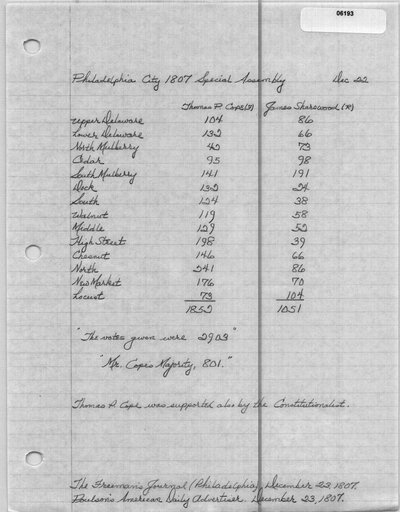 06193
Philadelphia City 1807 Special Assembly Dec 22
Thomas P. Cope (F) James Sharswood (R)
Upper Delaware 104 86
Lower Delaware 132 66
North Mulberry 42 73
Cedar 95 98
South Mulberry 141 191
Dock 132 24
South 124 38
Walnut 119 58
Middle 129 52
High Street 198 39
Chesnut 146 66
North 241 86
New Market 176 70
Locust 73 104
1852 1051
"The votes given were 2903"
"Mr. Cope's Majority, 801."
Thomas P. Cope was supported also by the Constitutionalist.
The Freeman's Journal (Philadelphia), December 23, 1807.
Poulson's American Daily Advertiser. December 23, 1807.